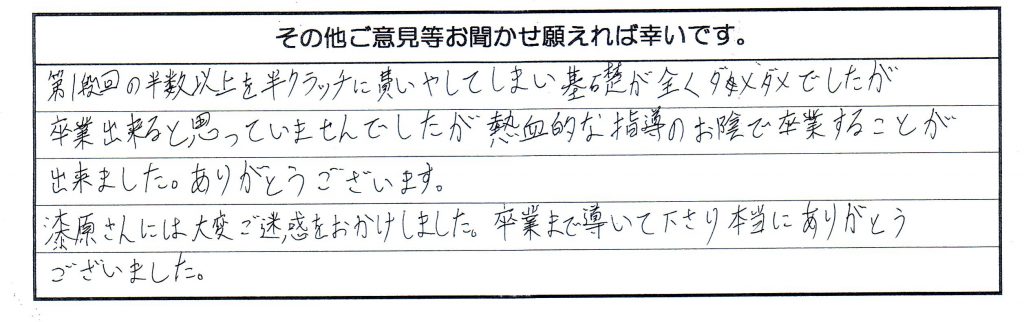 その他ご意見等お聞かせ願えれば幸いです。
第1段回の半数以上を半クラッチに費いやしてしまい基礎が全くダメダメでしたが
卒業出来ると思っていませんでしたが熱血的な指導のお陰で卒業することが
出来ました。ありがとうございます。
漆原さんには大変ご迷惑をおかけしました。卒業まで導いて下さり本当にありがとう
ございました。